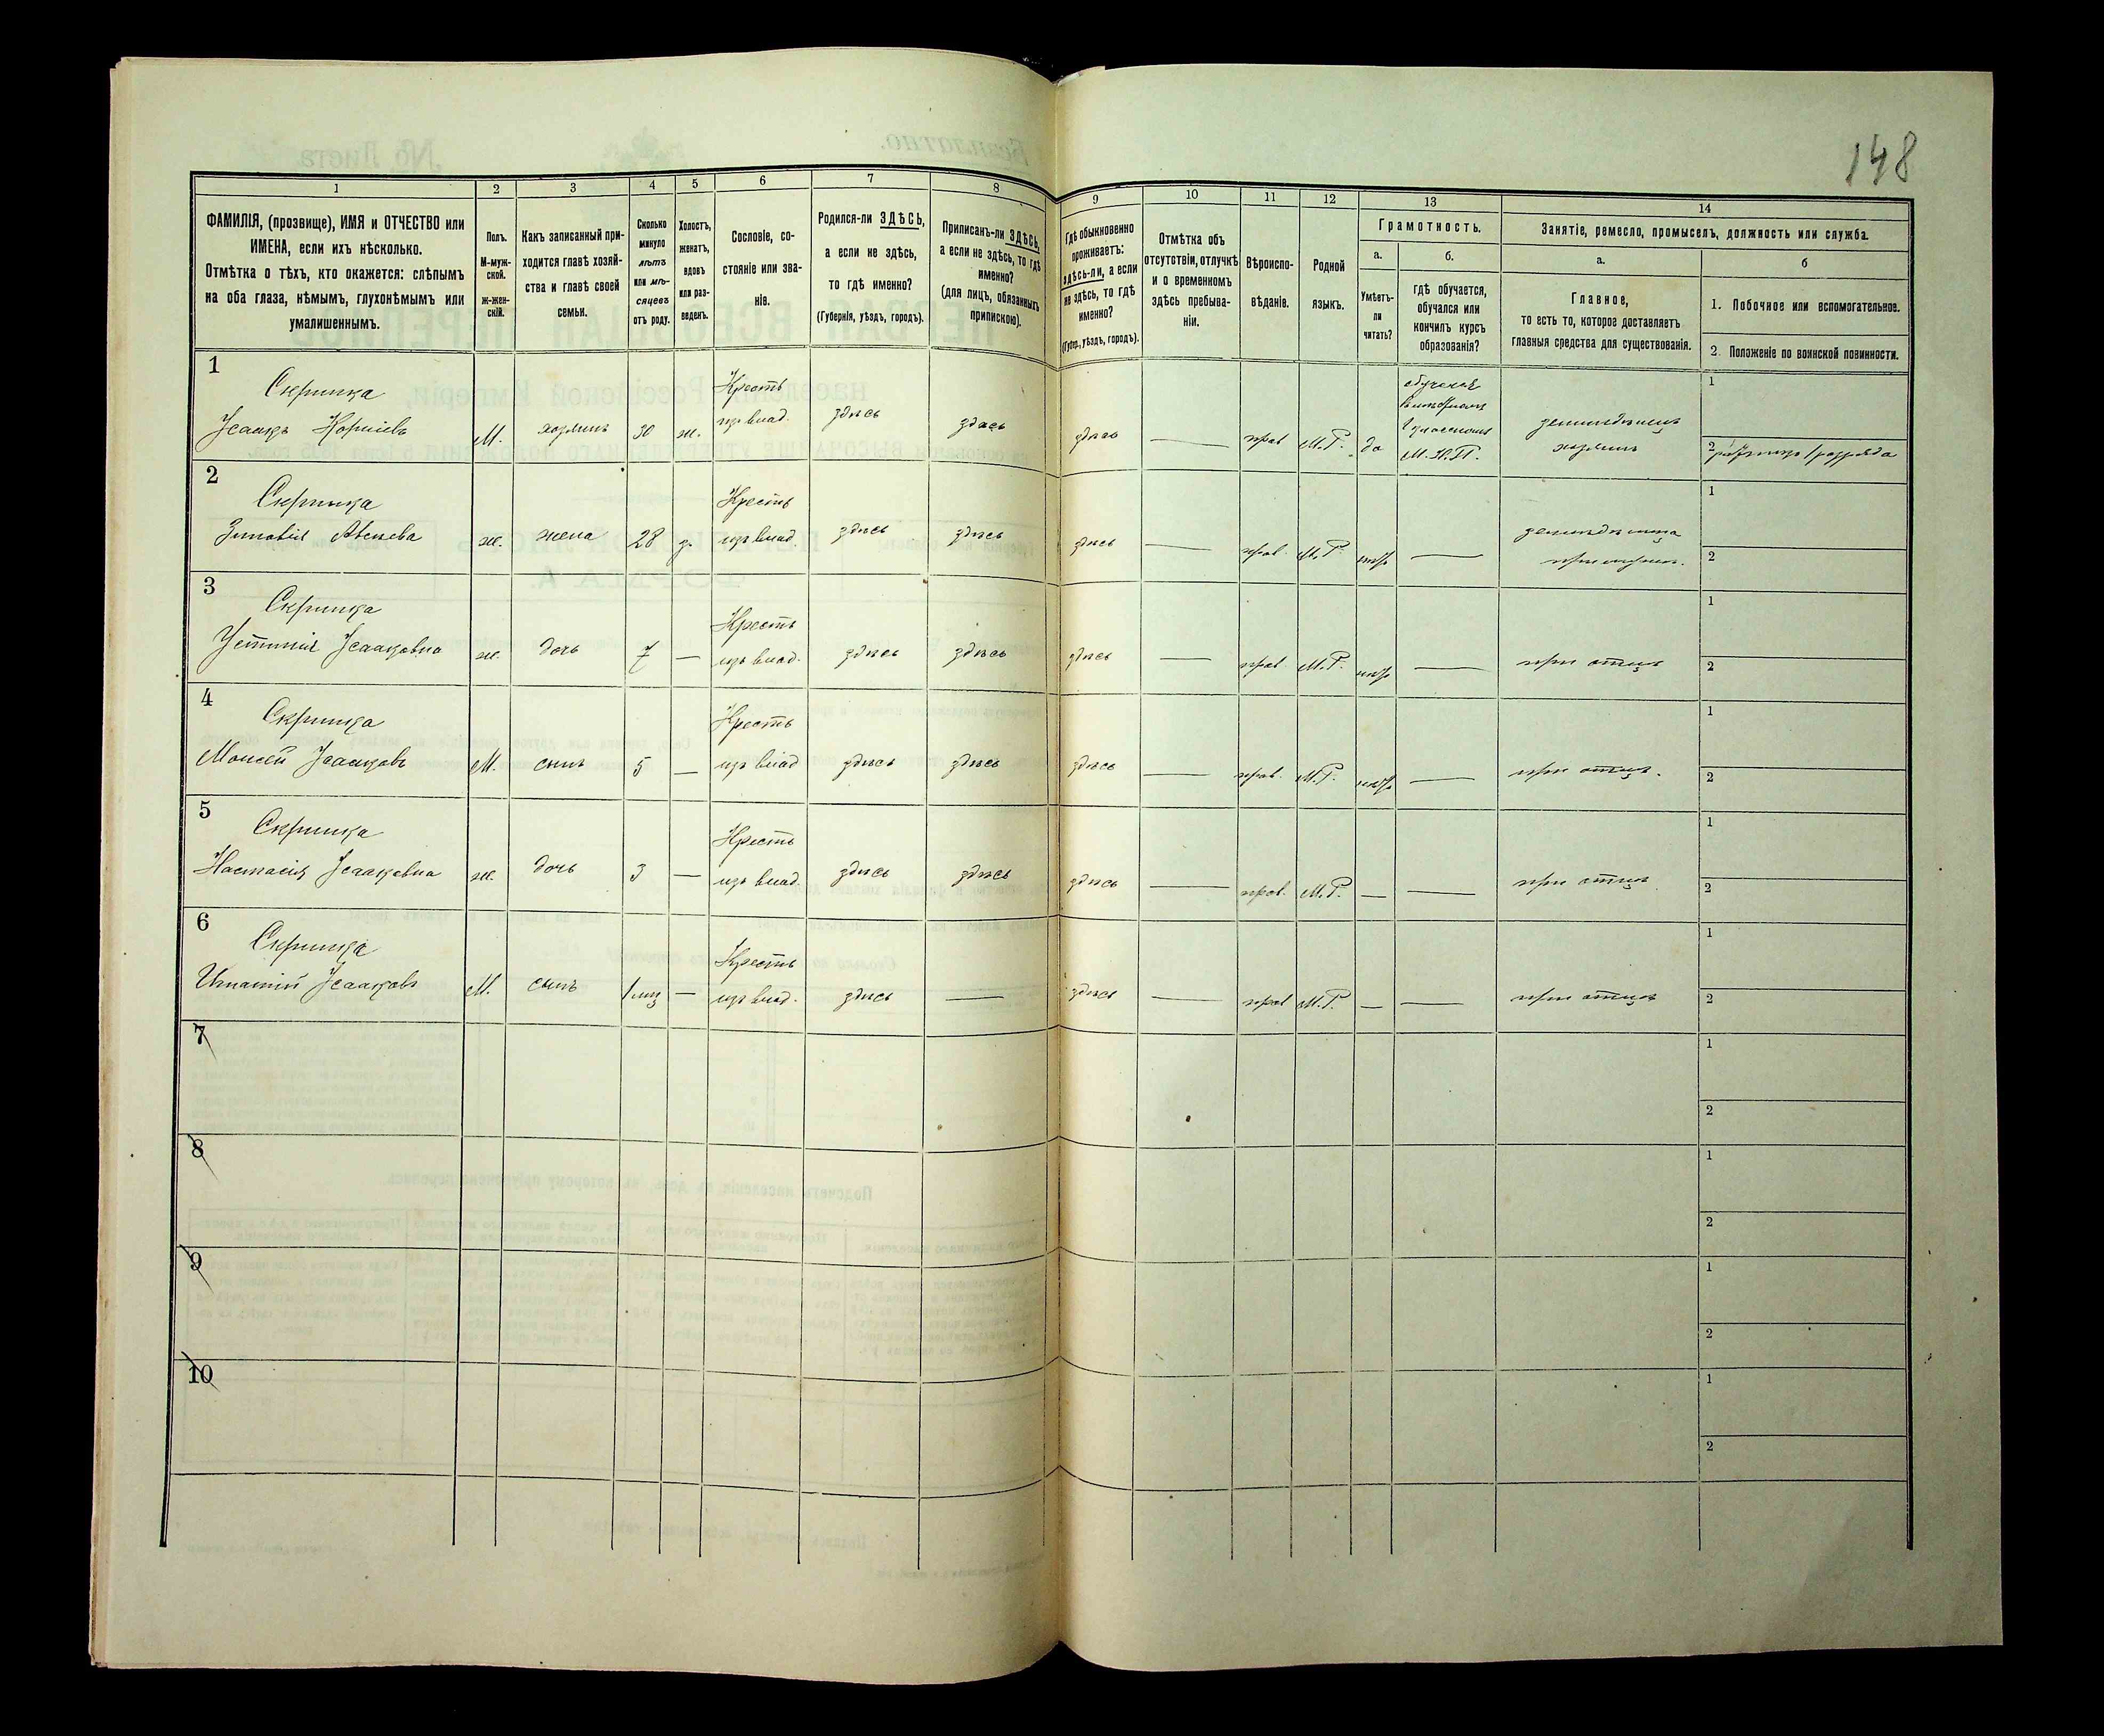 148
1 2 3 4 5 6 7 8 9 10 11 12 13 14
ФАМИЛІЯ, (прозвище), ИМЯ и ОТЧЕСТВО или
ИМЕНА, если ихъ нѣсколько.
Отмѣтка о тѣхъ, кто окажется: слѣпымъ
на оба глаза, нѣмымъ, глухонѣмымъ или
умалишеннымъ.
Полъ.
М-муж-
ской.
ж-жен-
скій.
Какъ записанный при-
ходится главѣ хозяй-
ства и главѣ своей
семьи.
Сколько
минуло
лѣтъ
или мѣ-
сяцевъ
отъ роду.
Холостъ,
женатъ,
вдовъ
или раз-
веденъ.
Сословіе, со-
стояніе или зва-
ніе.
Родился-ли ЗДѢСЬ,
а если не здѣсь,
то гдѣ именно?
(Губернія, уѣздъ, городъ).
Приписанъ-ли ЗДѢСЬ,
а если не здѣсь, то гдѣ
именно?
(для лицъ, обязанныхъ
припискою).
Гдѣ обыкновенно
проживаетъ:
здѣсь-ли, а если
не здѣсь, то гдѣ
именно?
(Губер., уѣздъ, городъ).
Отмѣтка объ
отсутствіи, отлучкѣ
и о временномъ
здѣсь пребыва-
ніи.
Вѣроиспо-
вѣданіе.
Родной
языкъ.
Грамотность.
а.
Умѣетъ-
ли
читать?
б.
гдѣ обучается,
обучался или
кончилъ курсъ
образованія?
Занятіе, ремесло, промыселъ, должность или служба.
а.
Главное,
то есть то, которое доставляетъ
главныя средства для существованія.
б
1. Побочное или вспомогательное.
2. Положеніе по воинской повинности.
1
Скрипка
Исаакъ Корніевъ
М. хозяинъ 30 ж.
Крестъ
изъ влад.
здѣсь здѣсь здѣсь — прав М.Р. да
М.Н.П.
земледѣлецъ
хозяинъ
1
2 разряда
2
Скрипка
Зиновія
ж. жена 28 з.
Крестъ
изъ влад.
здѣсь здѣсь здѣсь — прав. М.Р. нѣтъ —
1
2
3
Скрипка
Устинія Исааковна
ж. дочь 7 —
Крестъ
изъ влад.
здѣсь здѣсь здѣсь — прав М.Р. нѣтъ — при отцѣ
1
2
4
Скрипка
Моисей Исааковъ
М. сынъ 5 —
Крестъ
изъ влад
здѣсь здѣсь здѣсь — прав. М.Р. нѣтъ — при отцѣ.
1
2
5
Скрипка
Настасія Исааковна
ж. дочь 3 —
Крестъ
изъ влад.
здѣсь здѣсь здѣсь — прав. М.Р. — — при отцѣ
1
2
6
Скрипка
Игнатій Исааковъ
М. сынъ 1 мѣц —
Крестъ
изъ влад.
здѣсь — здѣсь — прав М.Р. — — при отцѣ
1
2
7
1
2
8
1
2
9
1
2
10
1
2